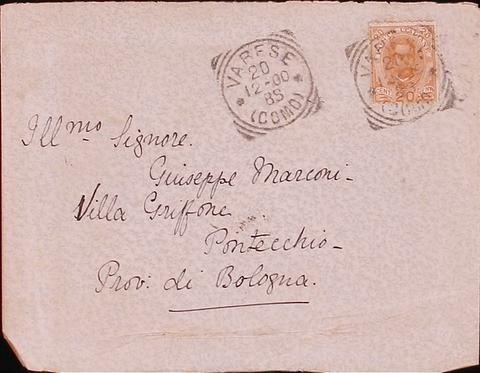 VARESE
20
12-00
8S
(COMO)
20
Ill^mo Signore.
Giuseppe Marconi-
Villa Griffone
Pontecchio-
Prov: di Bologna.